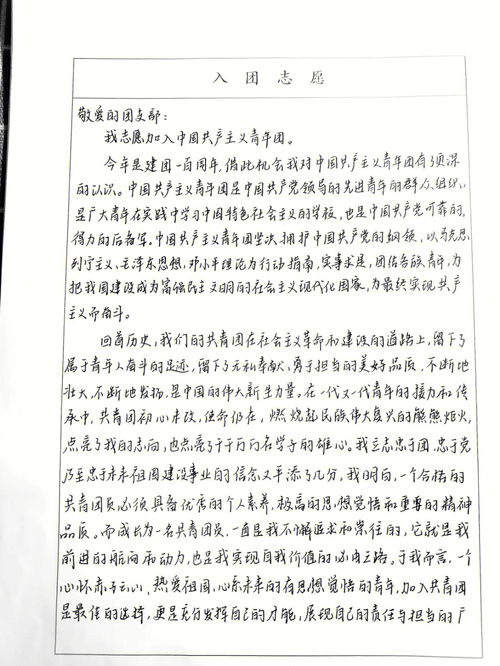 入团志愿
敬爱的团支部：
我志愿加入中国共产主义青年团。
今年是建团一百周年，借此机会我对中国共产主义青年团有了更深
的认识。中国共产主义青年团是中国共产党领导的先进青年的群众组织，
是广大青年在实践中学习中国特色社会主义的学校，也是中国共产党可靠的，
得力的后备军。中国共产主义青年团坚决拥护中国共产党的纲领，以马克思
列宁主义，毛泽东思想，邓小平理论为行动指南，实事求是，团结各族青年，为
把我国建设成为富强民主文明的社会主义现代化国家，为最终实现共产
主义而奋斗。
回首历史，我们的共青团在社会主义革命和建设的道路上，留下了
属于青年人奋斗的足迹，留下了无私奉献，勇于担当的美好品质，不断地
壮大，不断地发扬，是中国的伟大新生力量。在一代又一代青年的接力和传
承中，共青团初心未改，使命仍在，燃烧起民族伟大复兴的熊熊炬火，
点亮了我的志向，也点亮了千千万万名学子的雄心。我立志忠于团，忠于党
乃至忠于未来祖国建设事业的信念又平添了几分，我明白，一个合格的
共青团员必须具备优秀的个人素养，极高的思想觉悟和重要的精神
品质。而成长为一名共青团员，一直是我不懈追求和崇往的，它就是我
前进的航向和动力，也是我实现自我价值的必由之路。于我而言，一个
心怀赤子之心、热爱祖国，心系未来的有思想觉悟的青年，加入共青团
是最佳的选择，更是充分发挥自己的才能，展现自己的责任与担当的广